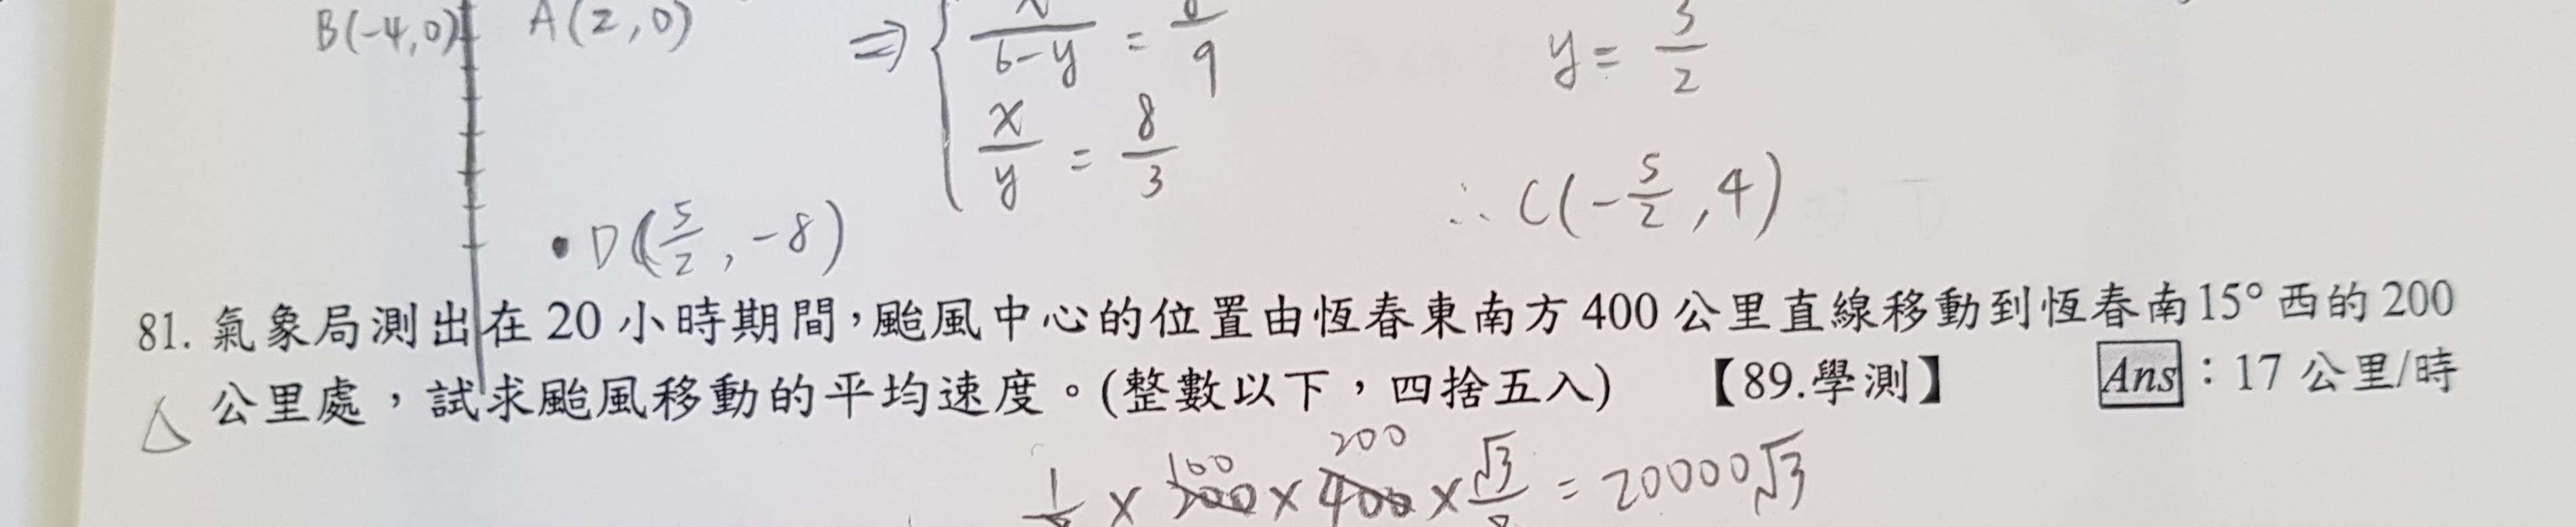 B(-4,0) A(2,0)
⇒ { x/(6-y) = 6/9
x/y = 8/3
y = 3/2
∴ C(-5/2, 4)
D(5/2, -8)
81. 氣象局測出在 20 小時期間,颱風中心的位置由恆春東南方 400 公里直線移動到恆春南15°西的 200
公里處,試求颱風移動的平均速度。(整數以下,四捨五入) 【89.學測】 Ans:17 公里/時
100 200
× 200 × 400 × √3 = 20000√3